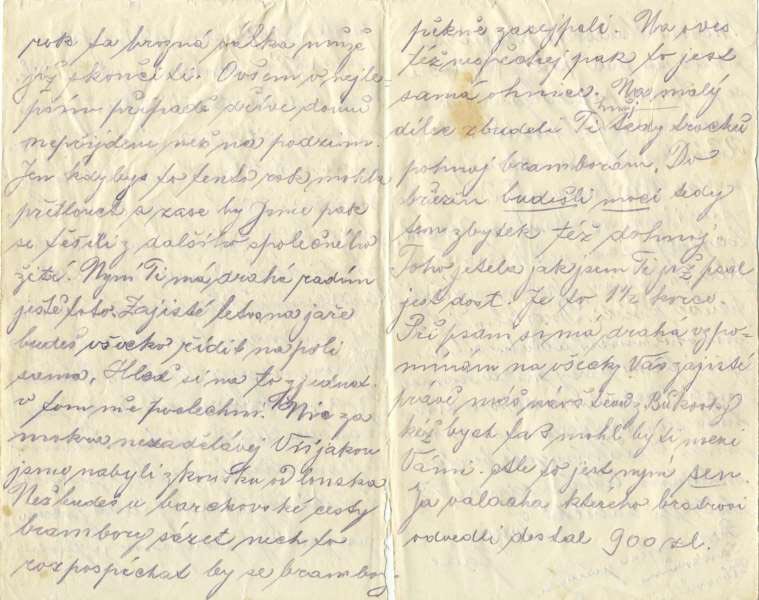 rok ta hrozná válka může
již skončiti. Ovšem v nejle-
pším případě dříve domů
nepřijdem než na podzim.
Jen kdyby to tento rok mohla
přitlouct a zase by jsme pak
se těšili z dalšího společného
žití. Nyní Ti má drahá radím
ještě toto. Zajisté letos na jaře
budeš všecko řídit na poli
sama. Hleď si na to zjednat
v tom mne poslechni. Nic za
mokra nezadělávej Víš jakou
jsme nabyli zkoušku od loňska
Než budeš u barchovské cesty
brambory sázet nech to
rozpospěchat by se brambory
pěkně zasejpali. Na oves
též nespěchej pak to jest
samá ohnice. Na malý
dílec zbudeli Ti hnůj tedy trochu
pohnoj bramborám. Do
březin budešli moci tedy
ten zbytek též dohnoj.
Toho jetele jak jsem Ti již psal
jest dost. Je to 1½ korce.
Při psaní si má drahá vzpo-
mínám na všecky Vás zajisté
právě máš
kéž bych tak mohl býti mezi
Vámi. Ale to jest nyní sen.
Za valacha kterého bratrovi
odvedli dostal 900 zl.